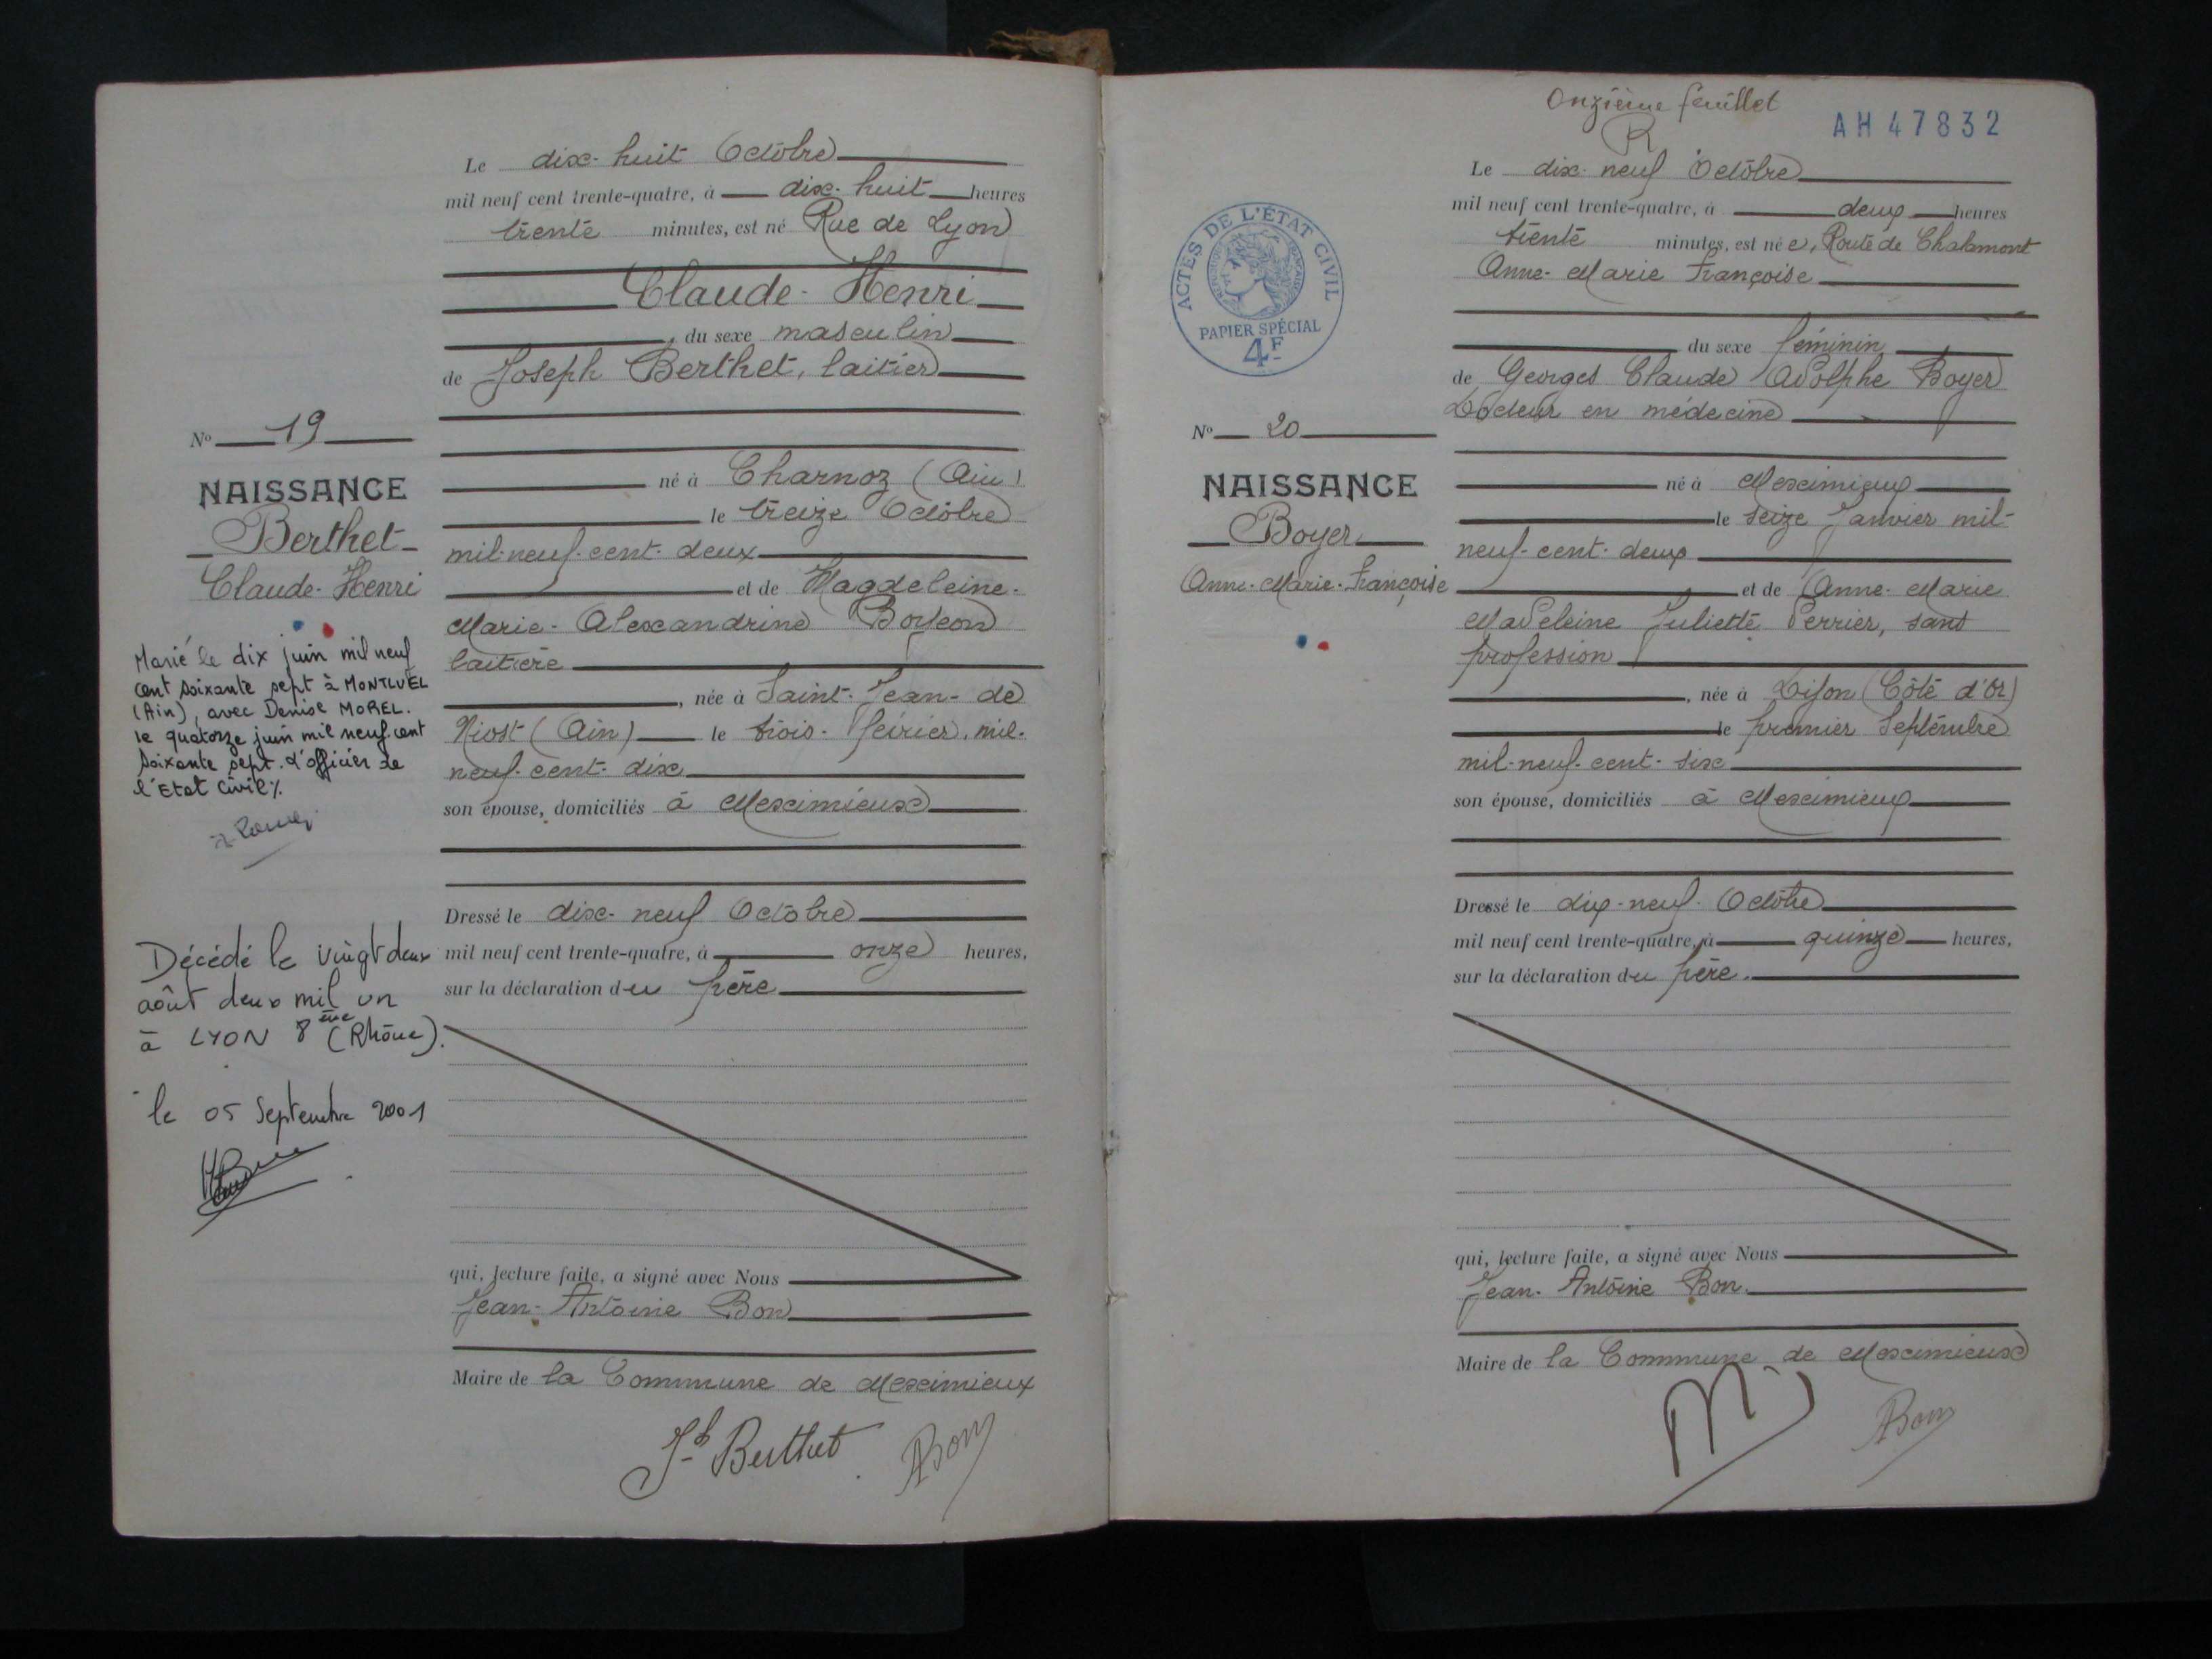 Le dix-huit Octobre
mil neuf cent trente-quatre, à dix-huit heures
trente minutes, est né Rue de Lyon
Claude-Henri
, du sexe masculin
de Joseph Berthet, laitier
né à Charnoz (Ain)
le treize Octobre
mil-neuf-cent-deux
et de Magdeleine-
Marie-Alexandrine Boyeon
laitière
, née à Saint-Jean-de
Niost (Ain) le trois-février, mil-
neuf-cent-dix
son épouse, domiciliés à Meximieux
Dressé le dix-neuf Octobre
mil neuf cent trente-quatre, à onze heures,
sur la déclaration du père
qui, lecture faite, a signé avec Nous
Jean-Antoine Bon
Maire de la Commune de Meximieux
Jh Berthet ABon
No 19
NAISSANCE
Berthet
Claude-Henri
Marié le dix juin mil neuf
cent soixante sept à MONTLUEL
(Ain), avec Denise MOREL.
le quatorze juin mil neuf cent
soixante sept. l'officier de
l'Etat civil %.
Décédé le vingt deux
août deux mil un
à LYON 8ème (Rhône).
le 05 Septembre 2001
Onzième feuillet
R
AH 47832
ACTES DE L'ÉTAT CIVIL
PAPIER SPÉCIAL
4F
Le dix-neuf Octobre
mil neuf cent trente-quatre, à deux heures
trente minutes, est née, Route de Chalamont
Anne-Marie Françoise
du sexe féminin
de Georges Claude Adolphe Boyer
Docteur en médecine
né à Meximieux
le seize Janvier mil-
neuf-cent-deux
et de Anne-Marie
Madeleine Juliette Perrier, sans
profession
, née à Dijon (Côte d'Or)
le premier Septembre
mil-neuf-cent-six
son épouse, domiciliés à Meximieux
Dressé le dix-neuf Octobre
mil neuf cent trente-quatre, à quinze heures,
sur la déclaration du père.
qui, lecture faite, a signé avec Nous
Jean-Antoine Bon.
Maire de la Commune de Meximieux
ABon
No 20
NAISSANCE
Boyer
Anne-Marie-Françoise